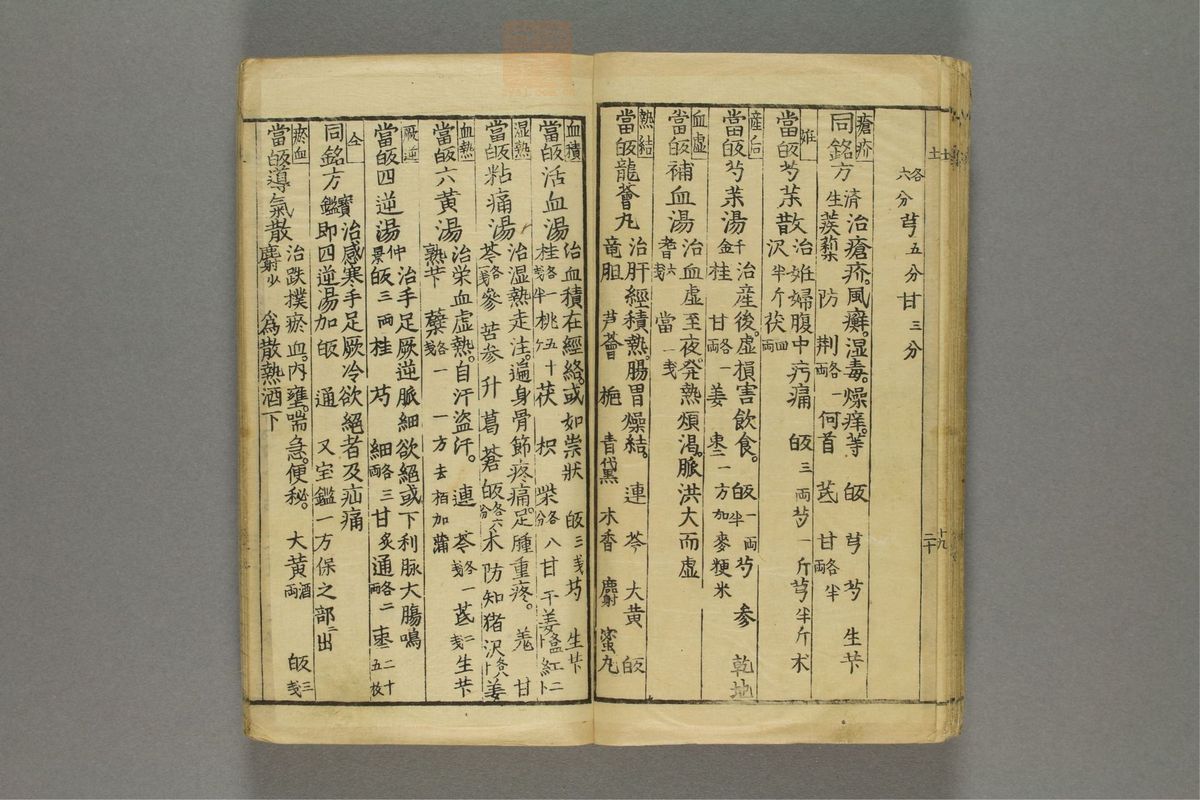 各六分芎五分甘三分
瘡疥
同銘方 済生 治瘡疥。風癬。湿毒。燥痒。等 皈 芎 芍 生 芐
蒺䔧 防 荆各一両 何首 芪 甘各半両
妊
當皈芍茱散 治妊婦腹中㽲痛 皈三両 芍一斤 芎半斤 朮
沢半斤 茯四両
産后
當皈芍茱湯 千金 治産後。虚損害飲食。皈一両半 芍 參 乾地
桂 甘各一両 姜 棗二 一方加麥粳米
血虚
當皈補血湯 治血虚至夜。発熱煩渇。脈洪大而虚
耆六戔 當一戔
熱結
當皈龍薈丸 治肝經積熱。腸胃燥結。連 芩 大黄 皈
竜胆 芦薈 梔 青黛 木香 麝 蜜丸
血積
當皈活血湯 治血積在經絡。或如祟状 皈三戔 芍 生芐
桂各一戔半 桃五十ケ 茯 枳 柴各八分 甘 干姜 紅二卜
湿熱
當皈粘痛湯 治湿熱走注。遍身骨節疼痛。足腫重疼。羗 甘
芩各一戔 參 苦参 升 葛 蒼 皈各六分 朮 防 知 猪 沢 姜
血熱
當皈六黄湯 治栄血虚熱。自汗盗汗。連 芩各一戔 芪二戔 生芐
熟芐 蘗各一戔 一方去栢加蒲
厥逆
當皈四逆湯 仲景 治手足厥逆脈細欲絕或下利脉大腸鳴
皈三両 桂 芍 細各三両 甘炙 通各二両 棗二十五枚
仝
同銘方 寳鑑 治感寒手足厥冷欲絕者及疝痛
即四逆湯加皈 通 又宝鑑一方保之部ニ出
瘀血
當皈導氣散 治跌撲瘀血。内壅。喘急。便秘。大黄酒両 皈三戔
麝少 為散熱酒下
十九
二十